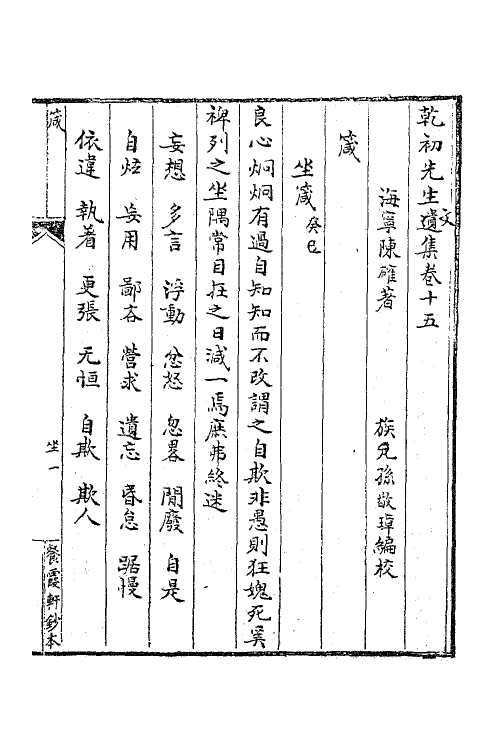 乾初先生遺文集卷十五
海寧陳確著 族兄孫敬璋編校
箴
坐箴癸巳
良心炯炯有過自知知而不改謂之自欺非愚則狂媿死奚
裨列之坐隅常目在之日減一焉庶弗終迷
妄想 多言 浮動 忿怒 忽畧 閒廢 自是
自炫 妄用 鄙吝 營求 遺忘 昏怠 踞慢
依違 執着 更張 无恒 自欺 欺人
箴
坐一
餐霞軒鈔本